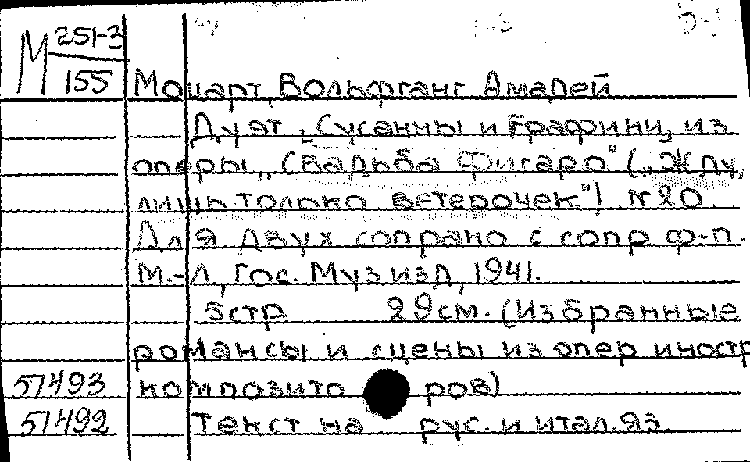 М 251-3
155
Моцарт, Вольфганг Амадей
Дуэт „Сусанны и Графини, из
оперы „Свадьба Фигаро" („Жду,
лишь только ветерочек")  №20.
Для двух сопрано с сопр ф-п.
М.-Л, Гос. Музизд, 1941.
5стр 29см. (Избранные
романсы и сцены из опер иностр
51493 композито ров)
51492 Текст на рус. и итал.яз